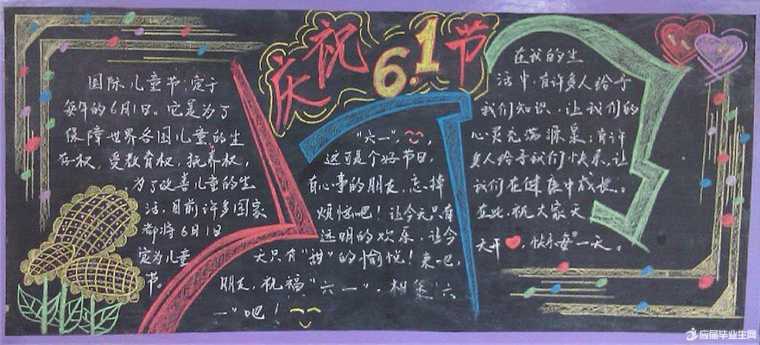 庆祝6.1节
国际儿童节,定于
每年的6月1日。它是为了
保障世界各国儿童的生
存权,受教育权,抚养权,
为了改善儿童的生
活,目前许多国家
都将6月1日
定为儿童
节。
"六一",
这可是个好节日,
有心事的朋友,忘掉
烦恼吧!让今天只有
透明的欢乐,让今
天只有"甜"的愉悦!来吧,
朋友,祝福"六一",相逢"六
一"吧!
在我的生
活中,有许多人给予
我们知识,让我们的
心灵充满源泉,有许
多人给予我们快乐,让
我们在健康中成长。
在此,祝大家天
天开,快乐每一天。
应届毕业生网